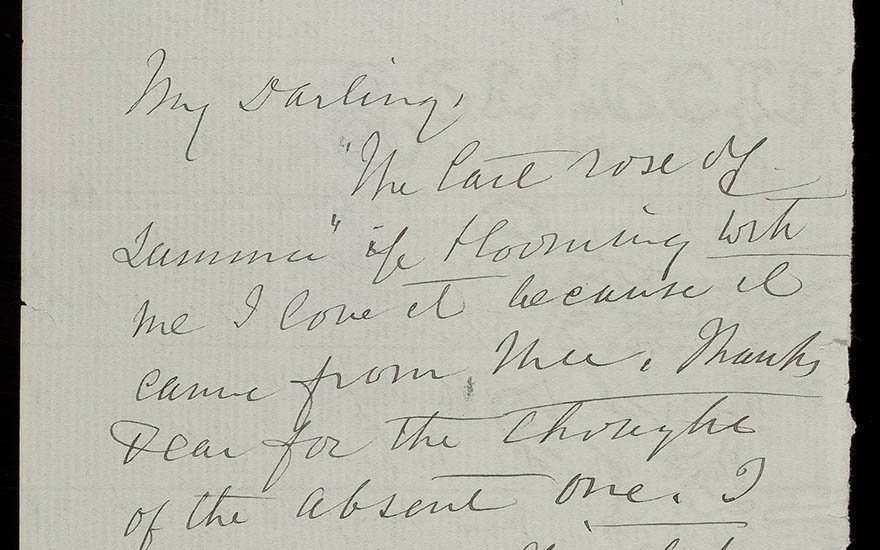 My Darling,
"The last rose of
Summer" is blooming with
me I love it because it
came from thee. Thanks
Dear for the thought
of the absent one. I